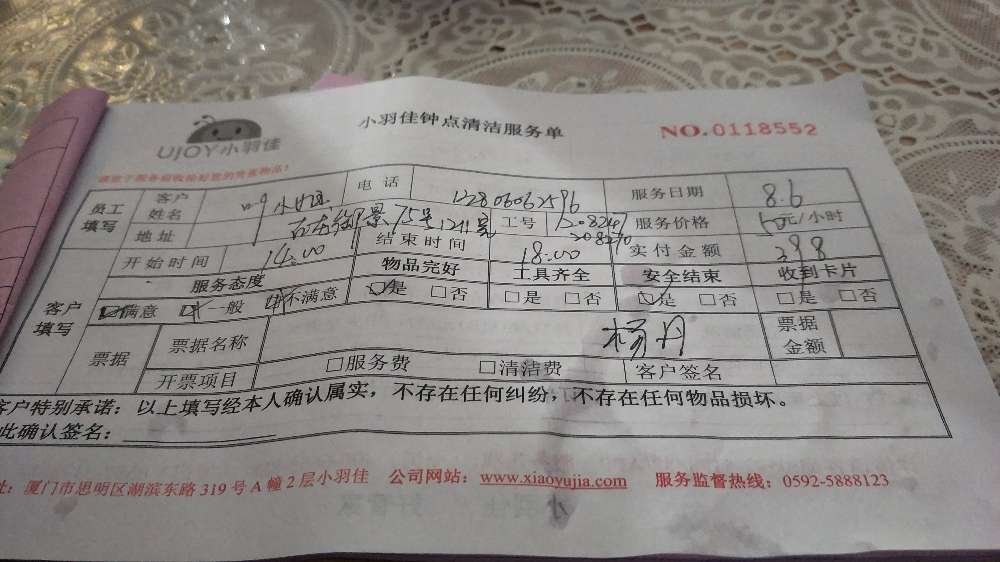 UJOY小羽佳
小羽佳钟点清洁服务单
NO.0118552
员工填写
客户姓名 小姐 电话 服务日期 8.6
地址 75号 工号 服务价格 50元/小时
开始时间 14.00 结束时间 18.00 实付金额 398
客户填写
服务态度 物品完好 工具齐全 安全结束 收到卡片
□满意 □一般 □不满意 □是 □否 □是 □否 □是 □否 □是 □否
票据 票据名称 杨丹 票据金额
开票项目 □服务费 □清洁费 客户签名
客户特别承诺：以上填写经本人确认属实，不存在任何纠纷，不存在任何物品损坏。
此确认签名：
址：厦门市思明区湖滨东路319号A幢2层小羽佳 公司网站：www.xiaoyujia.com 服务监督热线：0592-5888123